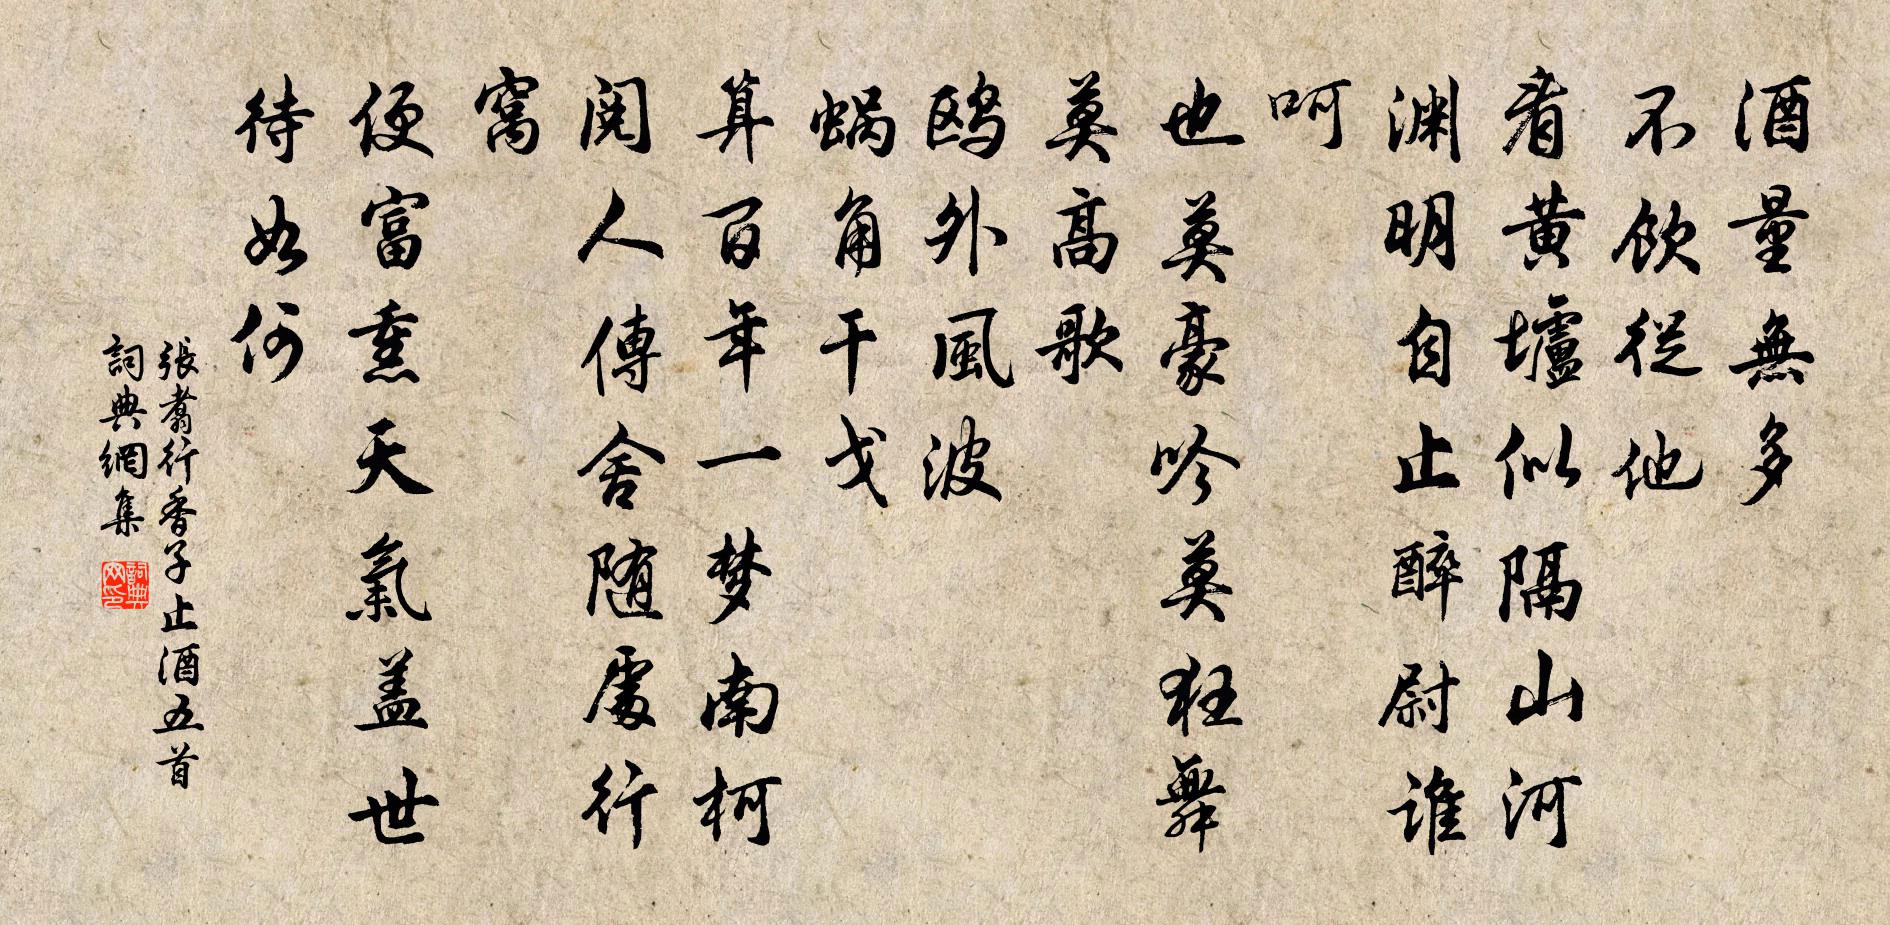 酒量無多
不飲從他
看黄壚似隔山河
渊明自止醉尉谁
呵
也莫豪吟莫狂舞
莫高歌
鸥外風波
蜗角干戈
算百年一梦南柯
閱人傳舍随處行
窩
便富熏天氣盖世
待如何
張翥行香子止酒五首
詞典網集
詞典网印